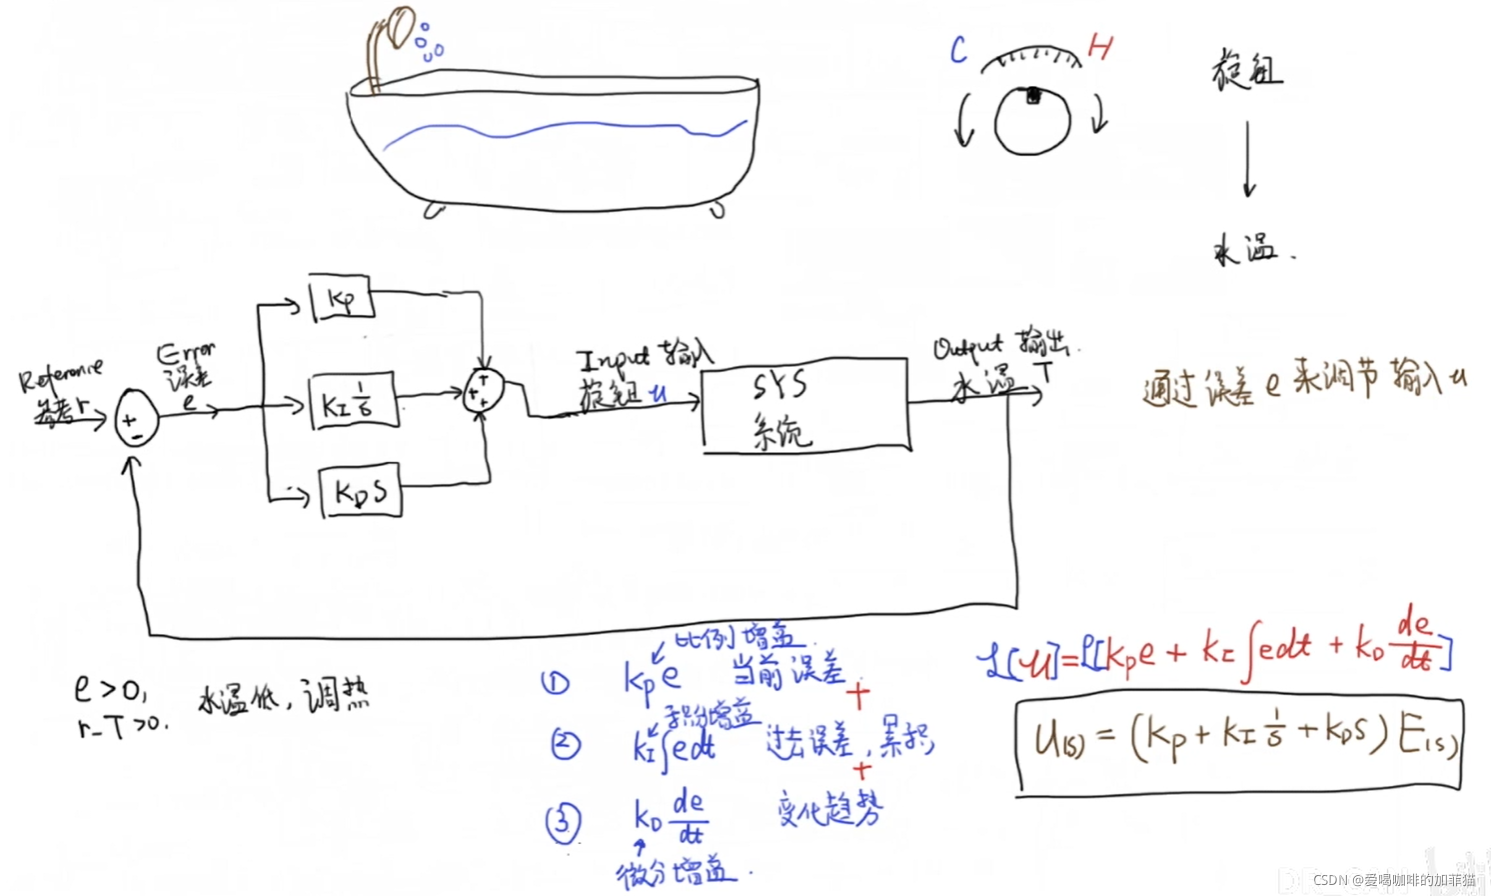 C H
旋钮
水温.
Reference
参考 r
Error
误差
e
+
-
Kp
KI 1/s
KD S
+
+ +
+
Input 输入
旋钮 u
SYS
系统
Output 输出.
水温 T
通过误差 e 来调节输入 u
e > 0,
r-T > 0.
水温低,调热
比例增益.
① kp e 当前误差
+
积分增益
② kI ∫edt 过去误差,累积,
+
③ kD de/dt 变化趋势
微分增益.
ℒ[u]=ℒ[kp e + kI ∫edt + kD de/dt]
U(s) = (kp + kI 1/s + kD s) E(s)
CSDN @爱喝咖啡的加菲猫